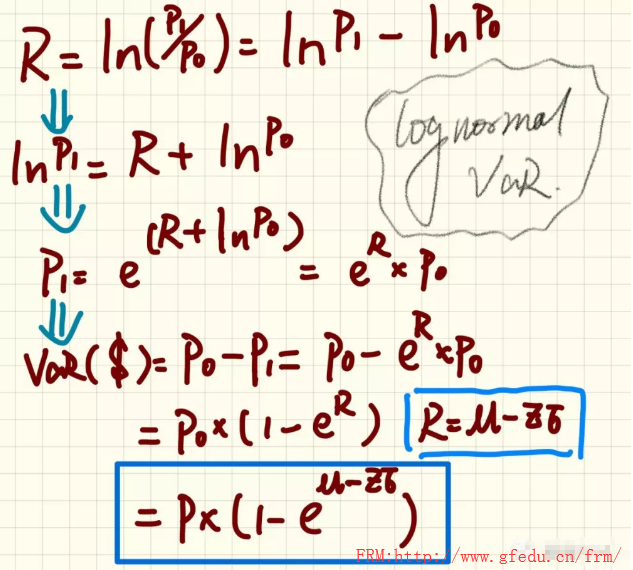 R = ln(P₁/P₀) = ln P₁ - ln P₀
lognormal
VaR.
⇓
ln P₁ = R + ln P₀
⇓
P₁ = e^(R + ln P₀) = e^R × P₀
⇓
VaR($) = P₀ - P₁ = P₀ - e^R × P₀
= P₀ × (1 - e^R) R = μ - zσ
= P × (1 - e^(μ - zσ))
FRM:http://www.gfedu.cn/frm/